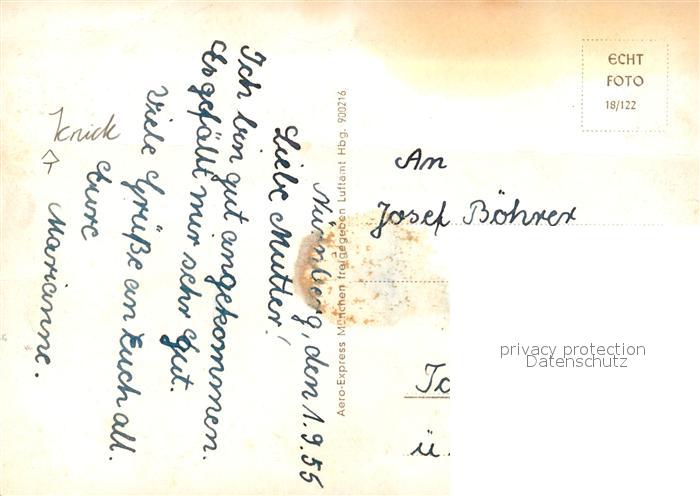 Nürnberg, den 1.9.55
Liebe Mutter!
Ich bin gut angekommen.
Es gefällt mir sehr gut.
Viele Grüße an Euch all.
Eure
Marianne.
Knick
Aero-Express München freigegeben Luftamt Hbg. 900216
ECHT
FOTO
18/122
An
Josef Böhrer
ü.
privacy protection
Datenschutz